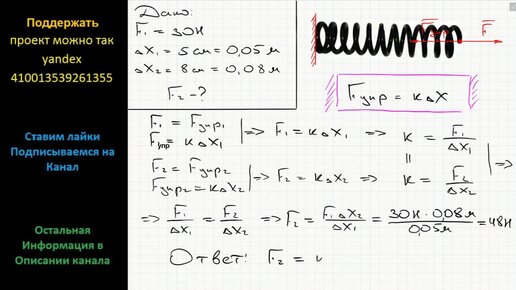 Поддержать
проект можно так
yandex
410013539261355
Ставим лайки
Подписываемся на
Канал
Остальная
Информация в
Описании канала
Дано:
F₁ = 30Н
Δx₁ = 5 см = 0,05 м
Δx₂ = 8 см = 0,08 м
F₂ - ?
F
Fупр = кΔx
F₁ = Fупр₁
Fупр₁ = кΔx₁ | => F₁ = кΔx₁ => к = F₁/Δx₁
F₂ = Fупр₂
Fупр₂ = кΔx₂ | => F₂ = кΔx₂ => к = F₂/Δx₂ | =>
=> F₁/Δx₁ = F₂/Δx₂ => F₂ = F₁Δx₂/Δx₁ = 30Н · 0,08м/0,05м = 48Н
Ответ: F₂ =